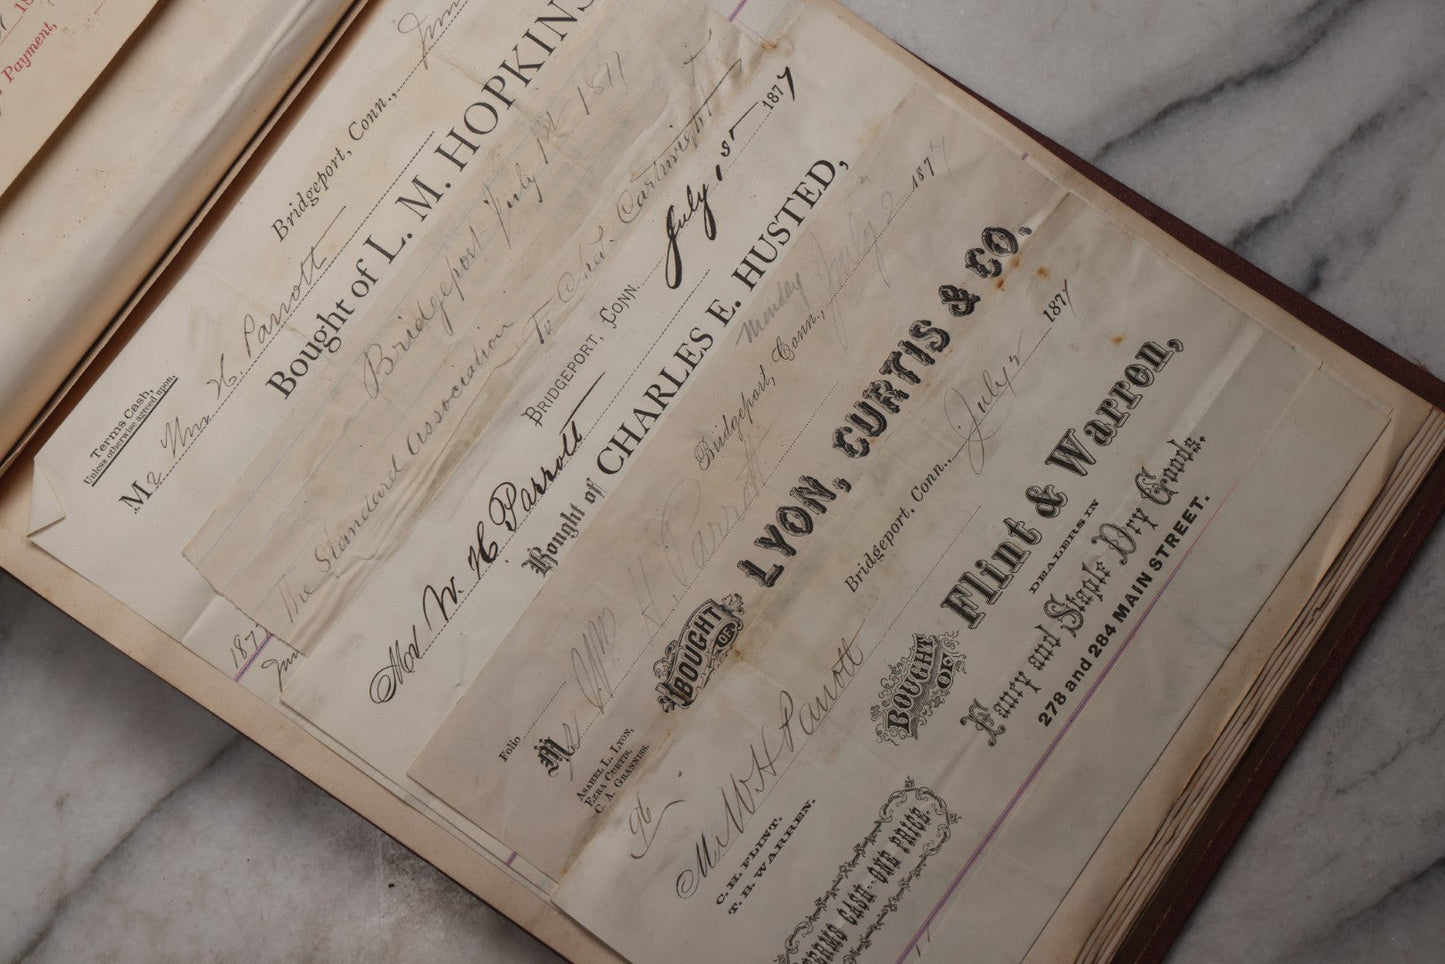 18
Payment,
Bridgeport, Conn.,
Terms Cash,
Unless otherwise agreed upon.
Mr Wm H. Parrott
Bought of L. M. HOPKINS
Bridgeport July 1st 1877
The Standard Association
To Chas. Cartwright
187
BRIDGEPORT, CONN. July 5 1877
Mr W. H Parrott
Bought of CHARLES E. HUSTED,
Monday
Bridgeport, Conn., July 2 1877
Folio
Mr Wm H. Parrott
BOUGHT OF LYON, CURTIS & CO.
ASAHEL L. LYON,
EZRA CURTIS,
C. A. GRANNISS.
Bridgeport, Conn., July 2 1877
Mr W H Parrott
BOUGHT OF Flint & Warren,
DEALERS IN
Fancy and Staple Dry Goods.
278 and 284 MAIN STREET.
C. H. FLINT.
T. B. WARREN.
TERMS CASH--ONE PRICE.